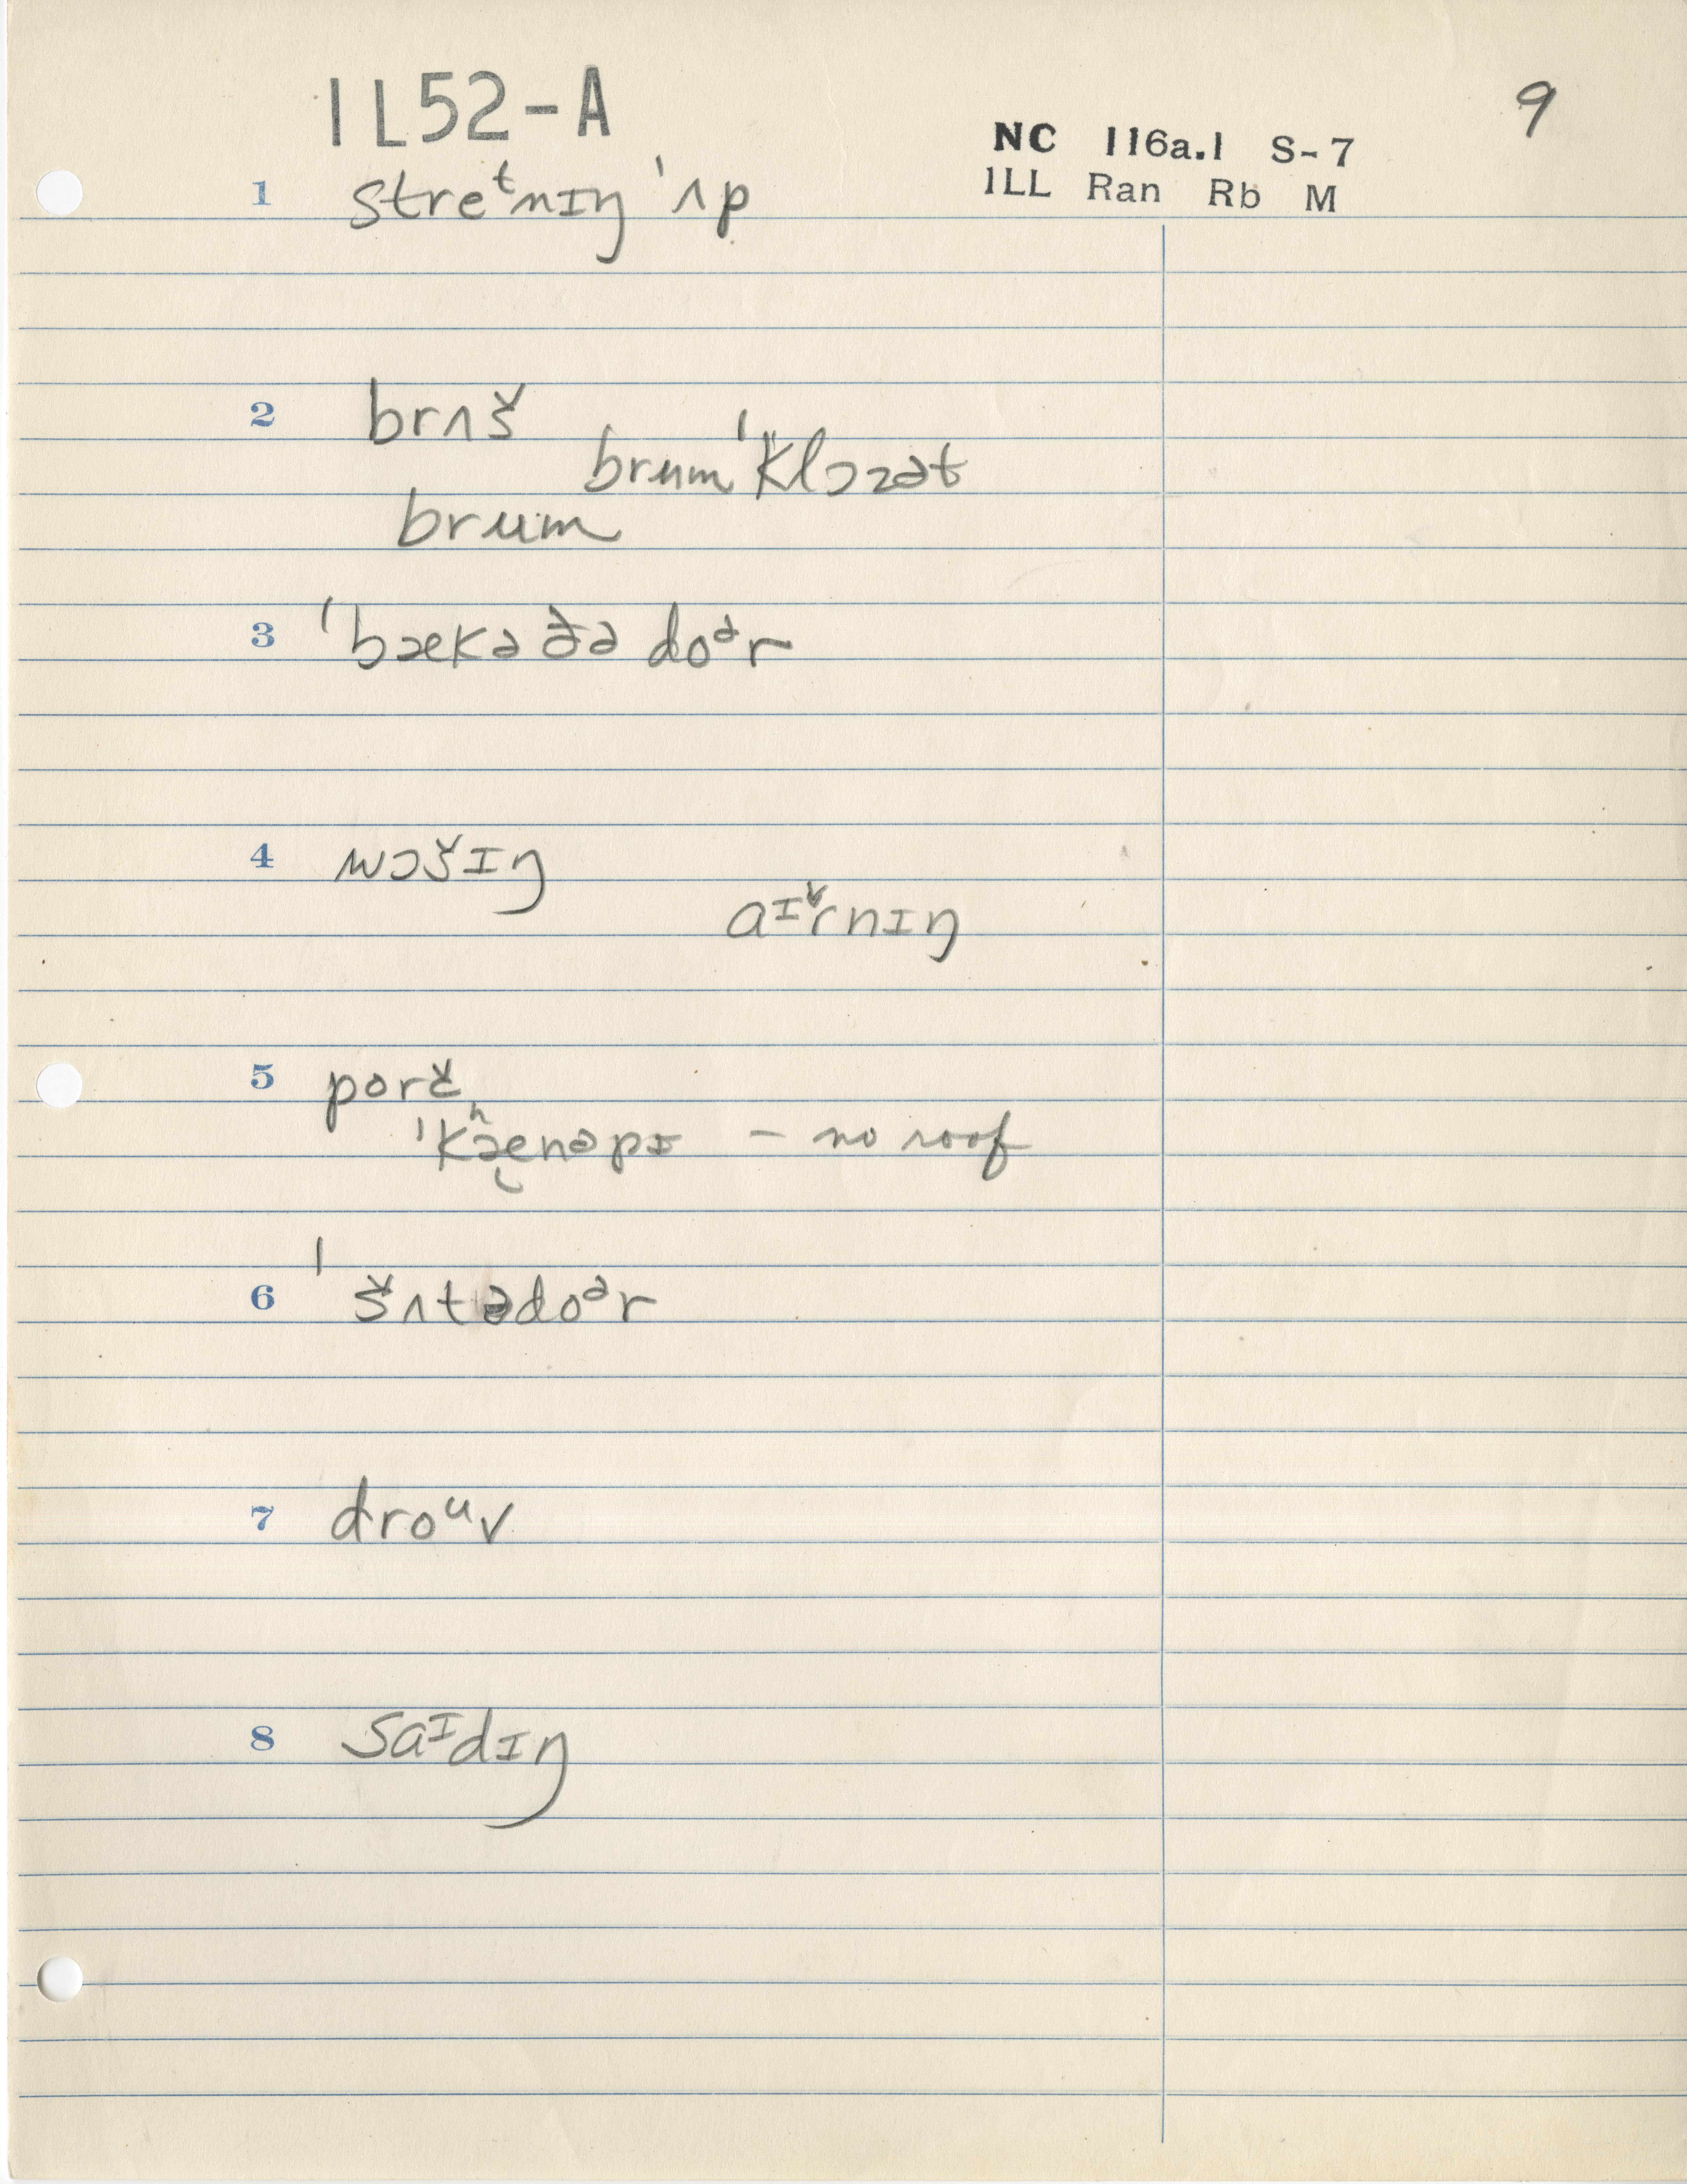 IL52-A
9
NC 116a.1 S-7
ILL Ran Rb M
1 streᵗnɪŋ ˈʌp
2 brʌš
brumˈklɔzət
brum
3 ˈbækə ðə doᵊr
4 wɔšɪŋ
aɪ̌rnɪŋ
5 porč
ˈkʰænəpɪ – no roof
6 ˈšʌtədoᵊr
7 droᵘv
8 saᶦdɪŋ